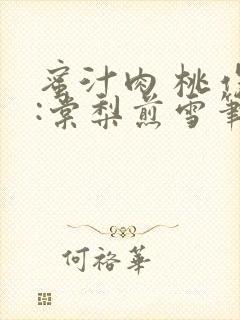 蜜汁肉桃
:棠梨煎雪筆
何裕華